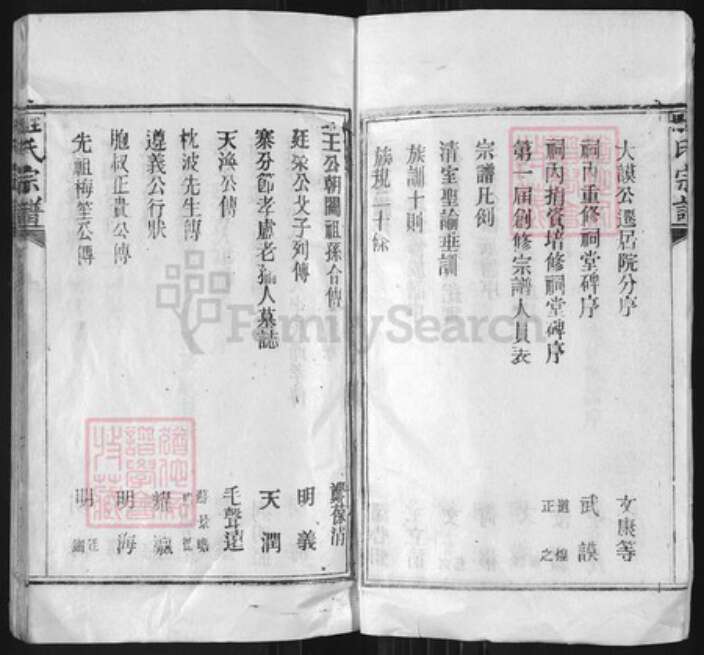 大謨公遷居院分序 文康等
祠內重修祠堂碑序 武謨
祠內捐資培修祠堂碑序 道煌 正之
第一届創修宗譜人員表
宗譜凡例
清室聖諭垂訓
族訓十則
族規二十條
王公朝闗祖孫合傳 鄭葆清
廷梁公父子列傳 明義
寨分節孝盧老孺人墓誌 天潤
天渙公傳 毛聲遠
枕波先生傳
遵義公行狀 耀瀛
胞叔正貴公傳 明海
先祖梅笙公傳 明
王氏宗譜
FamilySearch